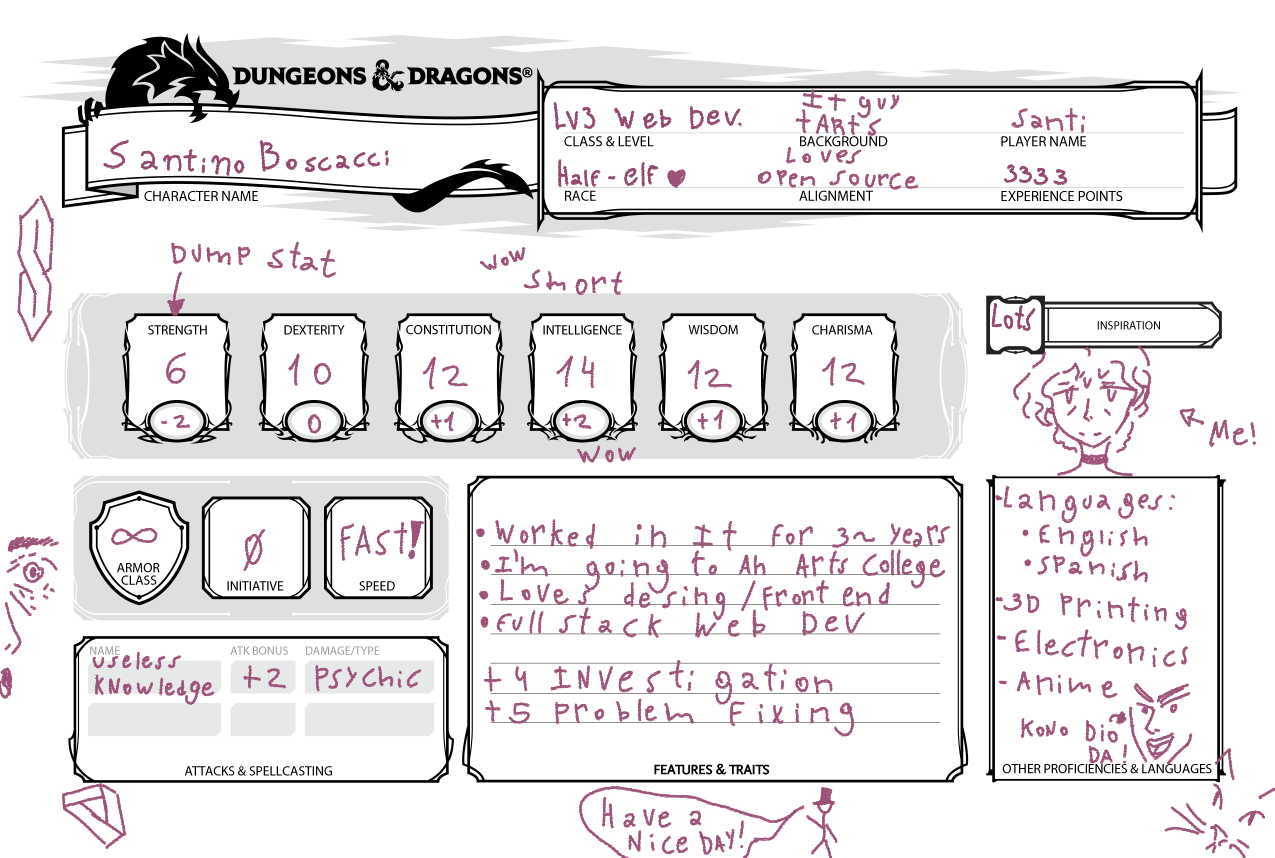 DUNGEONS & DRAGONS®
Lv3 Web Dev.
CLASS & LEVEL
It guy
+ARts
BACKGROUND
Santi
PLAYER NAME
Santino Boscacci
CHARACTER NAME
Half-elf ♥
RACE
Loves
open source
ALIGNMENT
3333
EXPERIENCE POINTS
Dump stat
wow
Smort
STRENGTH
6
-2
DEXTERITY
10
0
CONSTITUTION
12
+1
INTELLIGENCE
14
+2
WISDOM
12
+1
CHARISMA
12
+1
wow
Lots
INSPIRATION
Me!
∞
ARMOR
CLASS
Ø
INITIATIVE
FAST!
SPEED
NAME
ATK BONUS
DAMAGE/TYPE
useless
KNowledge
+2
PSYchic
ATTACKS & SPELLCASTING
• Worked in It for 3~ years
• I'm going to An Arts College
• Loves desing/Front end
• Full stack Web Dev
+4 INVesti gation
+5 Problem Fixing
FEATURES & TRAITS
-Languages:
• English
• Spanish
-3D Printing
- Electronics
- Anime
KoNo Dio
DA!
OTHER PROFICIENCIES & LANGUAGES
Have a
Nice DAY!